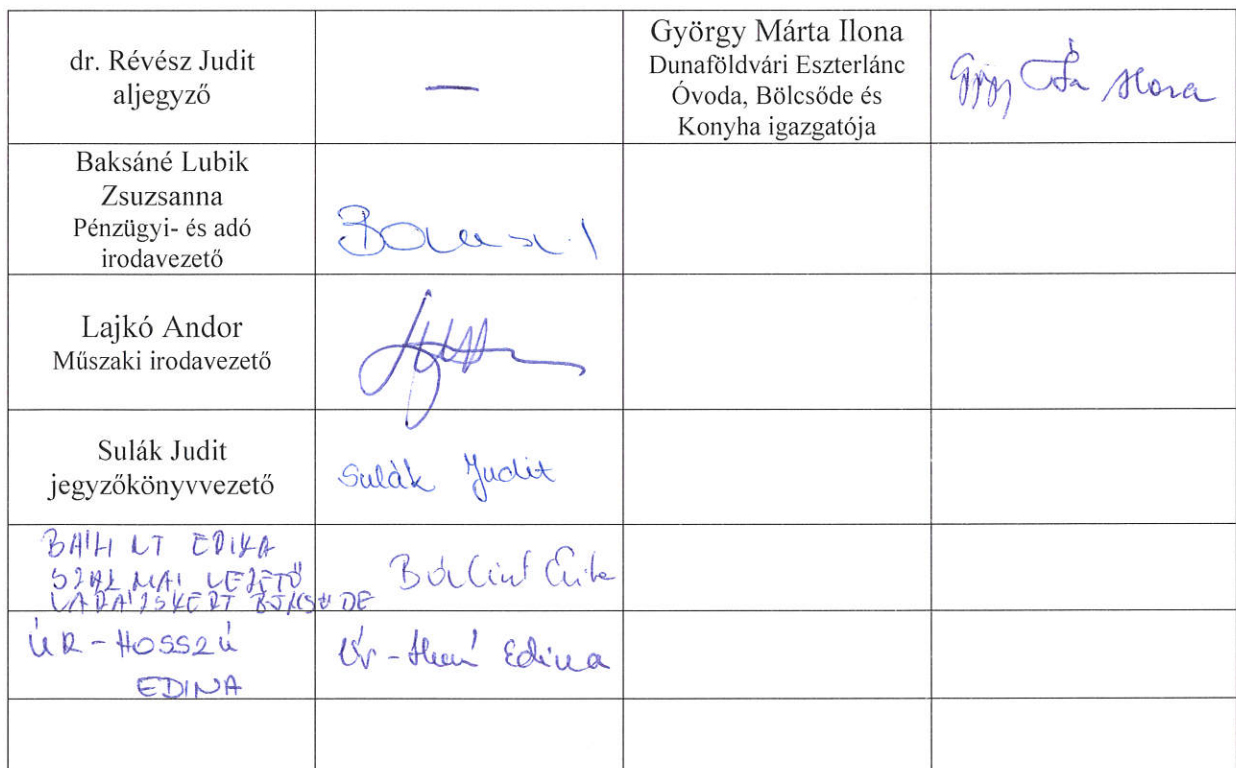 dr. Révész Judit
aljegyző
—
György Márta Ilona
Dunaföldvári Eszterlánc
Óvoda, Bölcsőde és
Konyha igazgatója
Baksáné Lubik
Zsuzsanna
Pénzügyi- és adó
irodavezető
Lajkó Andor
Műszaki irodavezető
Sulák Judit
jegyzőkönyvvezető
Sulák Judit
BÁLINT ERIKA
SZAKMAI VEZETŐ
VARÁZSKERT BÖLCSŐDE
Bálint Erika
ÚR-HOSSZÚ
EDINA
Úr-Hosszú Edina